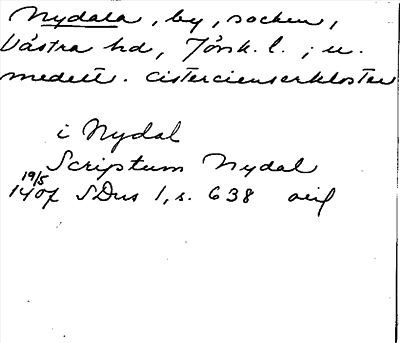 Nydala, by, socken,
Västra hd, Jönk. l. ; u.
medelt. cistercienserkloster
i Nydal
Scriptum Nydal
19/5
1407 SDns 1, s. 638 avskr